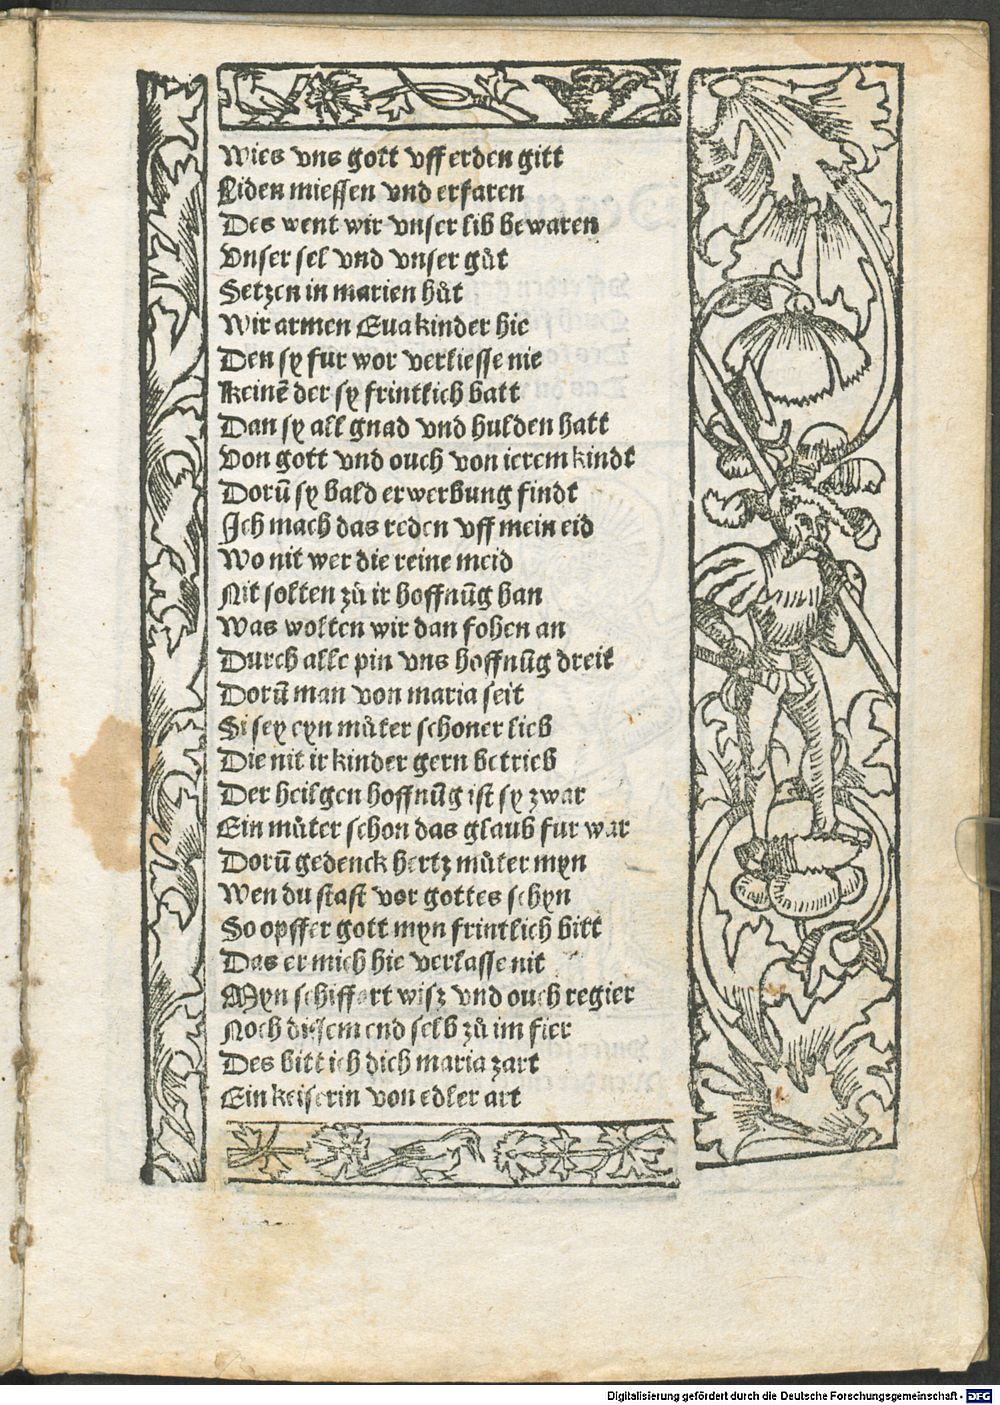 Wies vns gott vff erden gitt
Liden miessen vnd erfaren
Des went wir vnser lib bewaren
Vnser sel vnd vnser gůt
Setzen in marien hůt
Wir armen Eua kinder hie
Den sy fur wor verliesse nie
Keinē der sy frintlich batt
Dan sy all gnad vnd hulden hatt
Von gott vnd ouch von ierem kindt
Dorū sy bald erwerbung findt
Jch mach das reden vff mein eid
Wo nit wer die reine meid
Nit solten zů ir hoffnūg han
Was wolten wir dan fohen an
Durch alle pin vns hoffnūg dreit
Dorū man von maria seit
Si sey eyn můter schoner lieb
Die nit ir kinder gern betrieb
Der heilgen hoffnūg ist sy zwar
Ein můter schon das glaub fur war
Dorū gedenck hertz můter myn
Wen du stast vor gottes schyn
So opffer gott myn frintlich bitt
Das er mich hie verlasse nit
Myn schiffart wisz vnd ouch regier
Noch disem end selb zů im fier
Des bitt ich dich maria zart
Ein keiserin von edler art
Digitalisierung gefördert durch die Deutsche Forschungsgemeinschaft - DFG